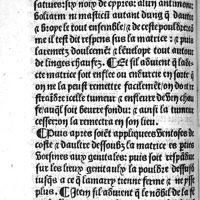 satures: sіx noix de cypres: alun antimoni:
boliarm ni masticii autant dung q̃ dautre
⁊ brope le tout ensemble/ ⁊ de ceste pouldre cõ
me il test dit respens sus la matrice: ⁊ puis
la remetz doulcemẽt ⁊ lenuelope tout autour
de linges chaultz. ¶ Et sil aduient q̃ la
cte matrice soit enflee ou endurcie en sorte q̃
on ne la puisse remettre facilemẽt/on doit re
straindre icelle tumeur ⁊ enfleure de bon chau
fe/auq̃l soit beurre fondu: ⁊ ainsi la tumeur
cessera ⁊ la remettra en son lieu.
¶ Puis apres soiẽt appliquees ventoses de
coste ⁊ daultre dessoubz la matrice es plus
voesines aux genitales: puis soit respãdue
sur les lieux genitaulx la pouldre dessusd
iusq̃s a ce q̃ lamarry tienne ferme ⁊ ne ysse
plus. ¶ Item sil aduient q̃ le nõbil de la fẽ